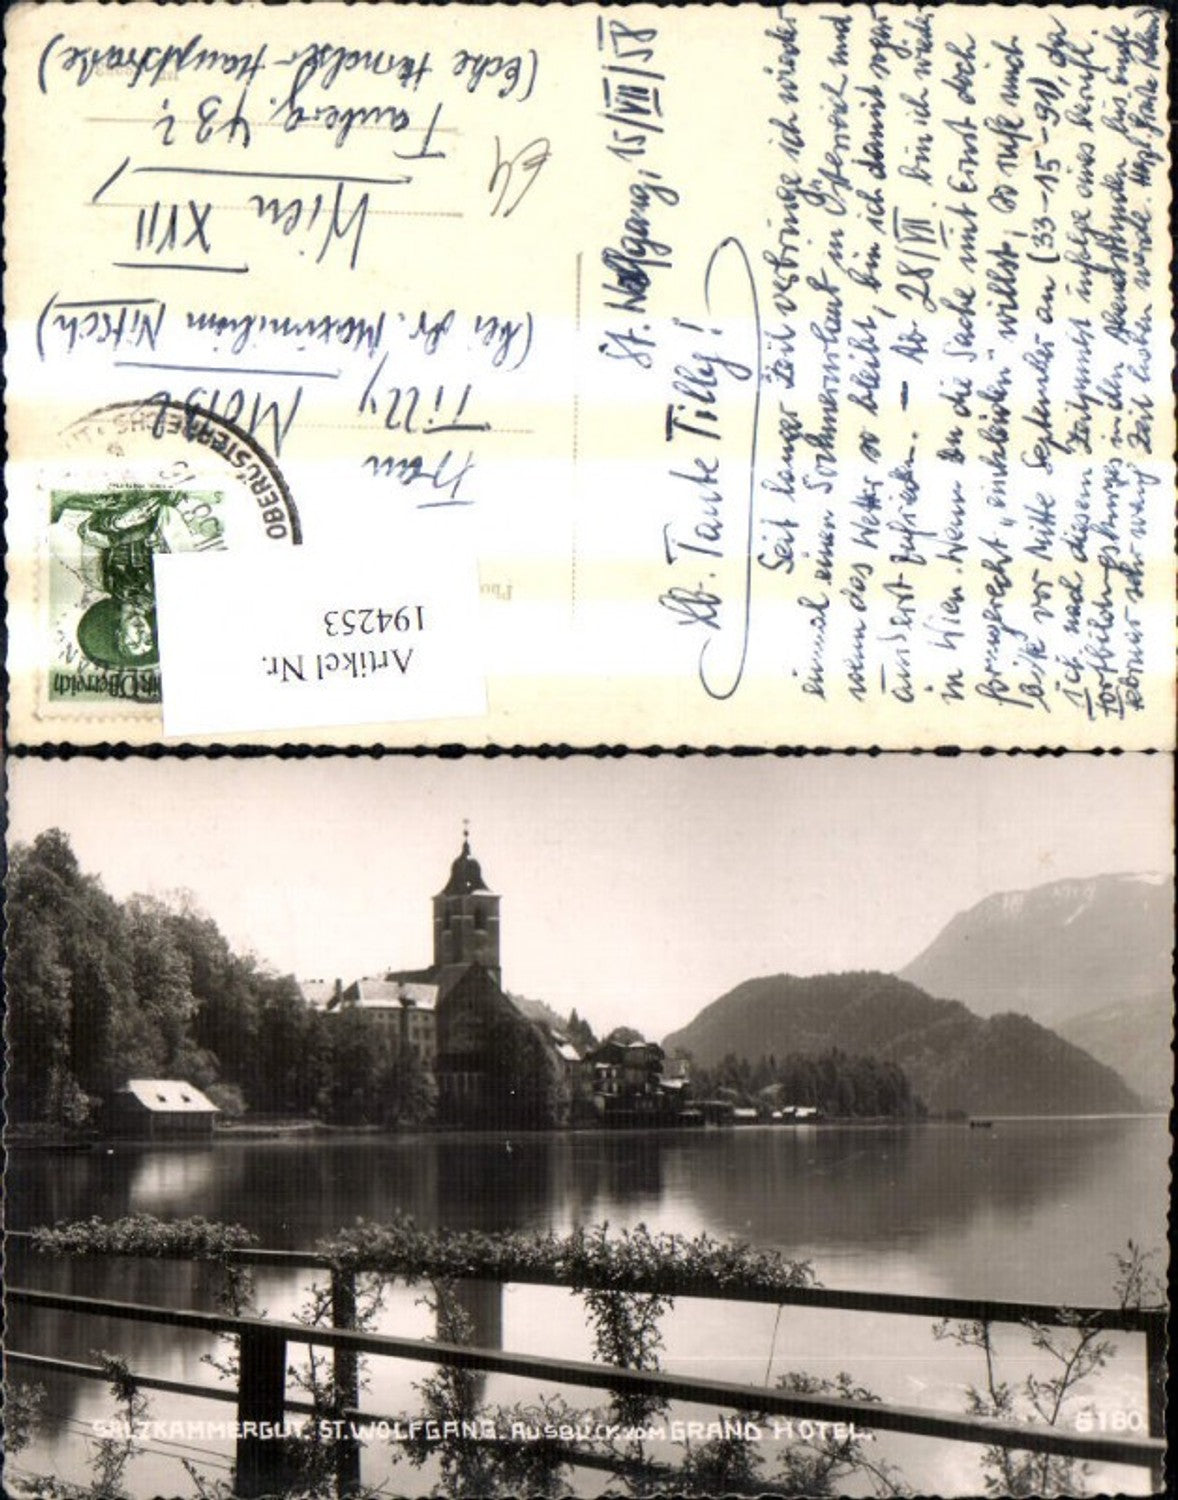 St. Wolfgang, 15/VII/58
Lb. Tante Tilly!
Seit langer Zeit verbringe ich wieder
einmal einen Sommerurlaub in Österreich und
wenn das Wetter so bleibt, bin ich damit sogar
äußerst zufrieden. — Ab 28/VII. bin ich wieder
in Wien. Wenn Du die Sache mit Ernst doch
formgerecht "einkleiden" willst, so rufe mich
bitte vor Mitte September an (33-15-91), da
ich nach diesem Zeitpunkt infolge eines berufl.
Fortbildungskurses in den Abendstunden bis Ende
Februar sehr wenig Zeit haben werde.
Frau
Tilly Moisl
(bei Dr. Maximilian Nitsch)
Wien XVII
43
(Ecke Hernalser Hauptstraße)
OBERÖSTERREICH
Artikel Nr.
194253
SALZKAMMERGUT. ST. WOLFGANG. AUSBLICK VOM GRAND HOTEL.
6160